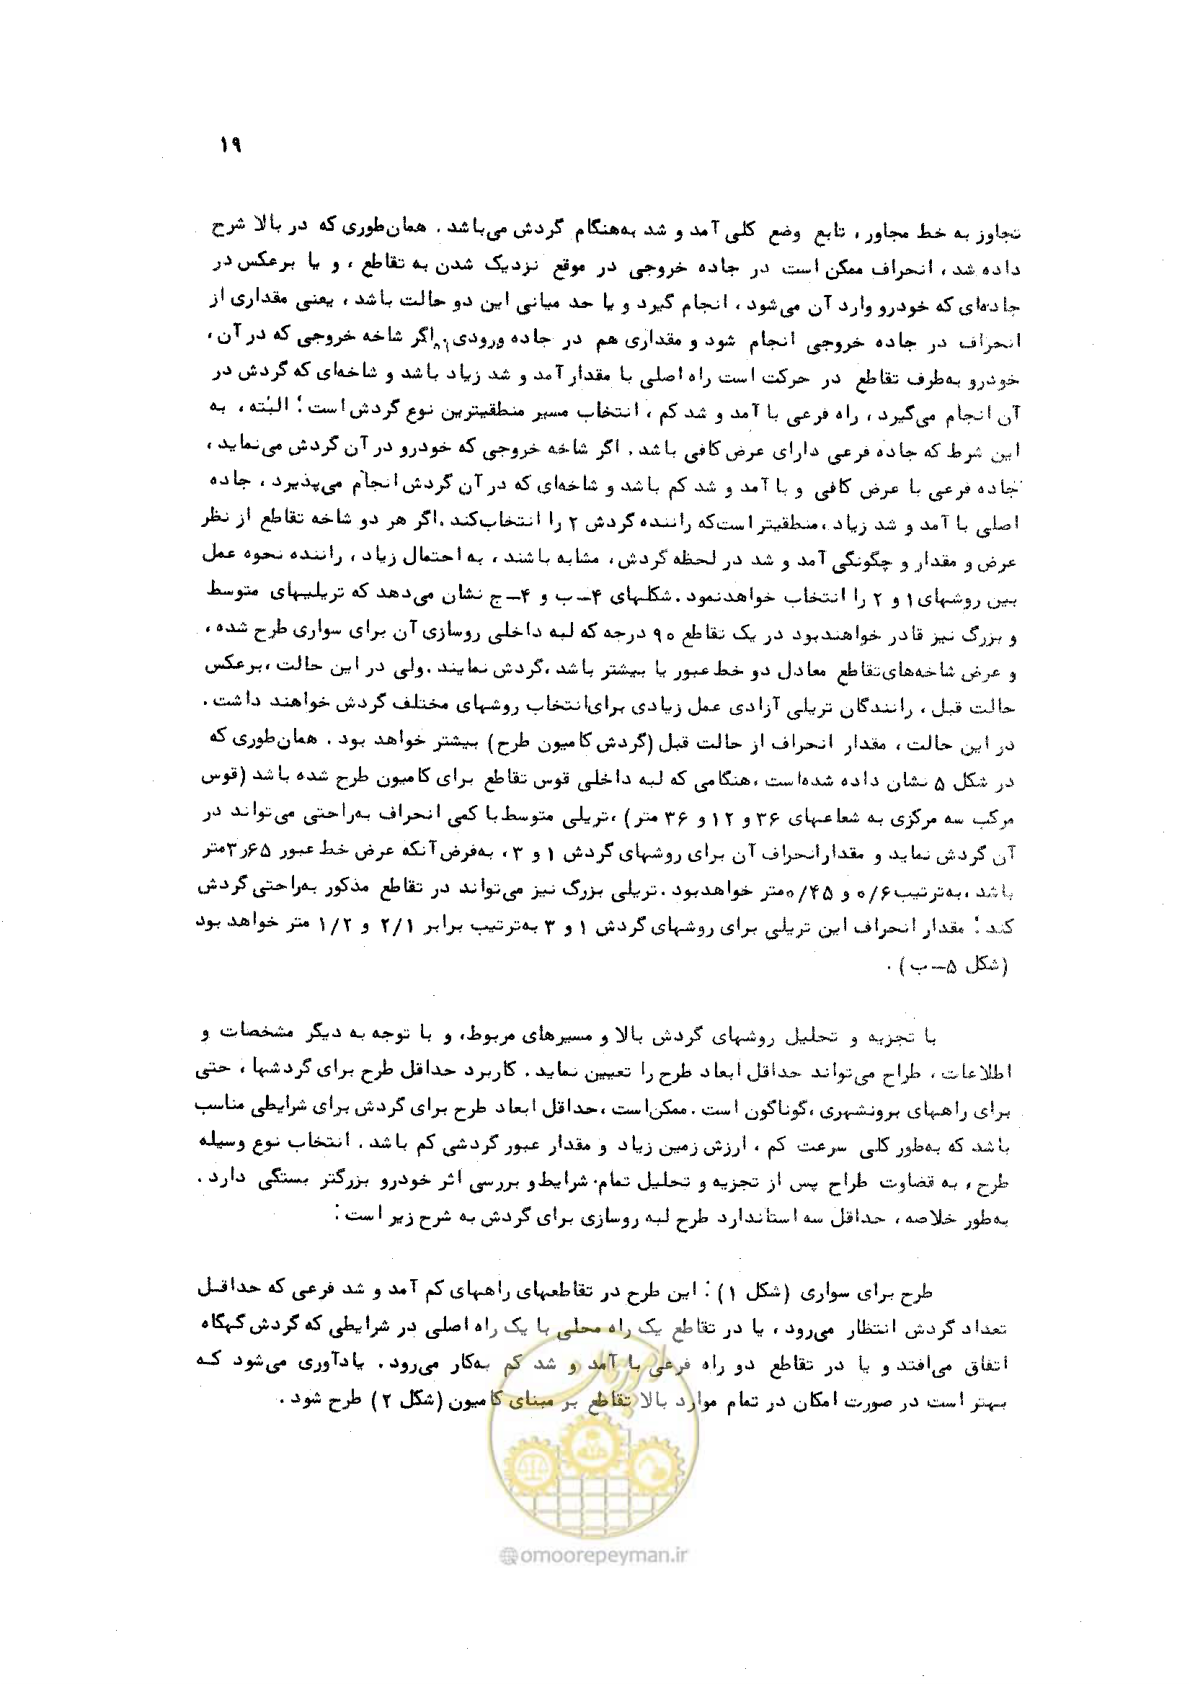 ۱۹
تجاوز به خط مجاور، تابع وضع کلی آمد و شد به‌هنگام گردش می‌باشد. همان‌طوری که در بالا شرح
داده شد، انحراف ممکن است در جاده خروجی در موقع نزدیک شدن به تقاطع، و یا برعکس در
جاده‌ای که خودرو وارد آن می‌شود، انجام گیرد و یا حد میانی این دو حالت باشد، یعنی مقداری از
انحراف در جاده خروجی انجام شود و مقداری هم در جاده ورودی. اگر شاخه خروجی که در آن،
خودرو به‌طرف تقاطع در حرکت است راه اصلی با مقدار آمد و شد زیاد باشد و شاخه‌ای که گردش در
آن انجام می‌گیرد، راه فرعی با آمد و شد کم، انتخاب مسیر منطقیترین نوع گردش است؛ البته، به
این شرط که جاده فرعی دارای عرض کافی باشد. اگر شاخه خروجی که خودرو در آن گردش می‌نماید،
جاده فرعی با عرض کافی و با آمد و شد کم باشد و شاخه‌ای که در آن گردش انجام می‌پذیرد، جاده
اصلی با آمد و شد زیاد، منطقیتر است‌که راننده گردش ۲ را انتخاب‌کند. اگر هر دو شاخه تقاطع از نظر
عرض و مقدار و چگونگی آمد و شد در لحظه گردش، مشابه باشند، به احتمال زیاد، راننده نحوه عمل
بین روشهای ۱ و ۲ را انتخاب خواهدنمود. شکلهای ۴-ب و ۴-ج نشان می‌دهد که تریلیهای متوسط
و بزرگ نیز قادر خواهندبود در یک تقاطع ۹۰ درجه که لبه داخلی روسازی آن برای سواری طرح شده،
و عرض شاخه‌های‌تقاطع معادل دو خط عبور یا بیشتر باشد، گردش نمایند. ولی در این حالت، برعکس
حالت قبل، رانندگان تریلی آزادی عمل زیادی برای‌انتخاب روشهای مختلف گردش خواهند داشت.
در این حالت، مقدار انحراف از حالت قبل (گردش کامیون طرح) بیشتر خواهد بود. همان‌طوری که
در شکل ۵ نشان داده شده‌است، هنگامی که لبه داخلی قوس تقاطع برای کامیون طرح شده باشد (قوس
مرکب سه مرکزی به شعاعهای ۳۶ و ۱۲ و ۳۶ متر)، تریلی متوسط با کمی انحراف به‌راحتی می‌تواند در
آن گردش نماید و مقدارانحراف آن برای روشهای گردش ۱ و ۳، به‌فرض آنکه عرض خط عبور ۳٫۶۵متر
باشد، به‌ترتیب ۰/۶ و ۰/۴۵متر خواهدبود. تریلی بزرگ نیز می‌تواند در تقاطع مذکور به‌راحتی گردش
کند؛ مقدار انحراف این تریلی برای روشهای گردش ۱ و ۳ به‌ترتیب برابر ۲/۱ و ۱/۲ متر خواهد بود
(شکل ۵-ب).
با تجزیه و تحلیل روشهای گردش بالا و مسیرهای مربوط، و با توجه به دیگر مشخصات و
اطلاعات، طراح می‌تواند حداقل ابعاد طرح را تعیین نماید. کاربرد حداقل طرح برای گردشها، حتی
برای راههای برونشهری، گوناگون است. ممکن‌است، حداقل ابعاد طرح برای گردش برای شرایطی مناسب
باشد که به‌طور کلی سرعت کم، ارزش زمین زیاد و مقدار عبور گردشی کم باشد. انتخاب نوع وسیله
طرح، به قضاوت طراح پس از تجزیه و تحلیل تمام شرایط و بررسی اثر خودرو بزرگتر بستگی دارد.
به‌طور خلاصه، حداقل سه استاندارد طرح لبه روسازی برای گردش به شرح زیر است:
طرح برای سواری (شکل ۱): این طرح در تقاطعهای راههای کم آمد و شد فرعی که حداقل
تعداد گردش انتظار می‌رود، یا در تقاطع یک راه محلی با یک راه اصلی در شرایطی که گردش گهگاه
اتفاق می‌افتد و یا در تقاطع دو راه فرعی با آمد و شد کم به‌کار می‌رود. یادآوری می‌شود که
بهتر است در صورت امکان در تمام موارد بالا تقاطع بر مبنای کامیون (شکل ۲) طرح شود.
@omoorepeyman.ir